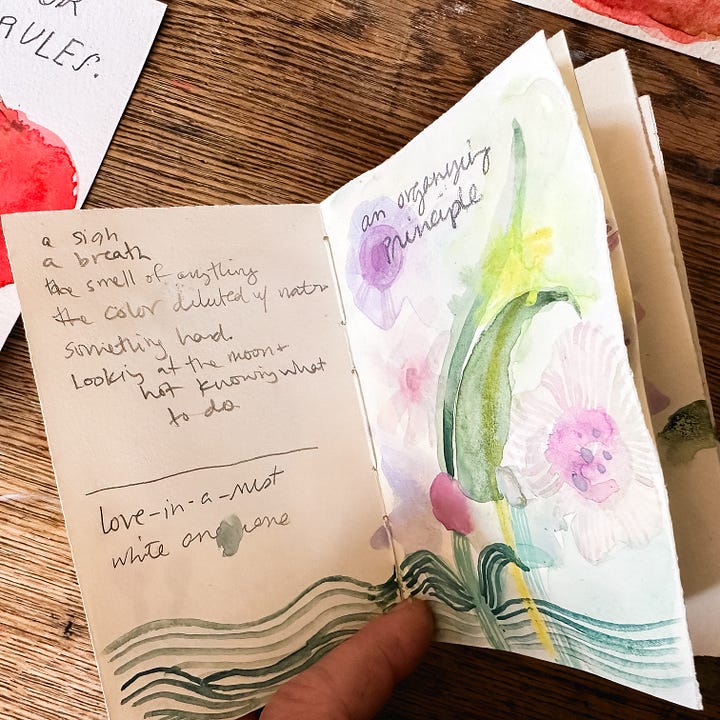 OR
RULES.
a sigh
a breath
the smell of anything
the color diluted w/ water
something hard.
Looking at the moon +
not knowing what
to do
love-in-a-mist
white anemone
an organizing
principle